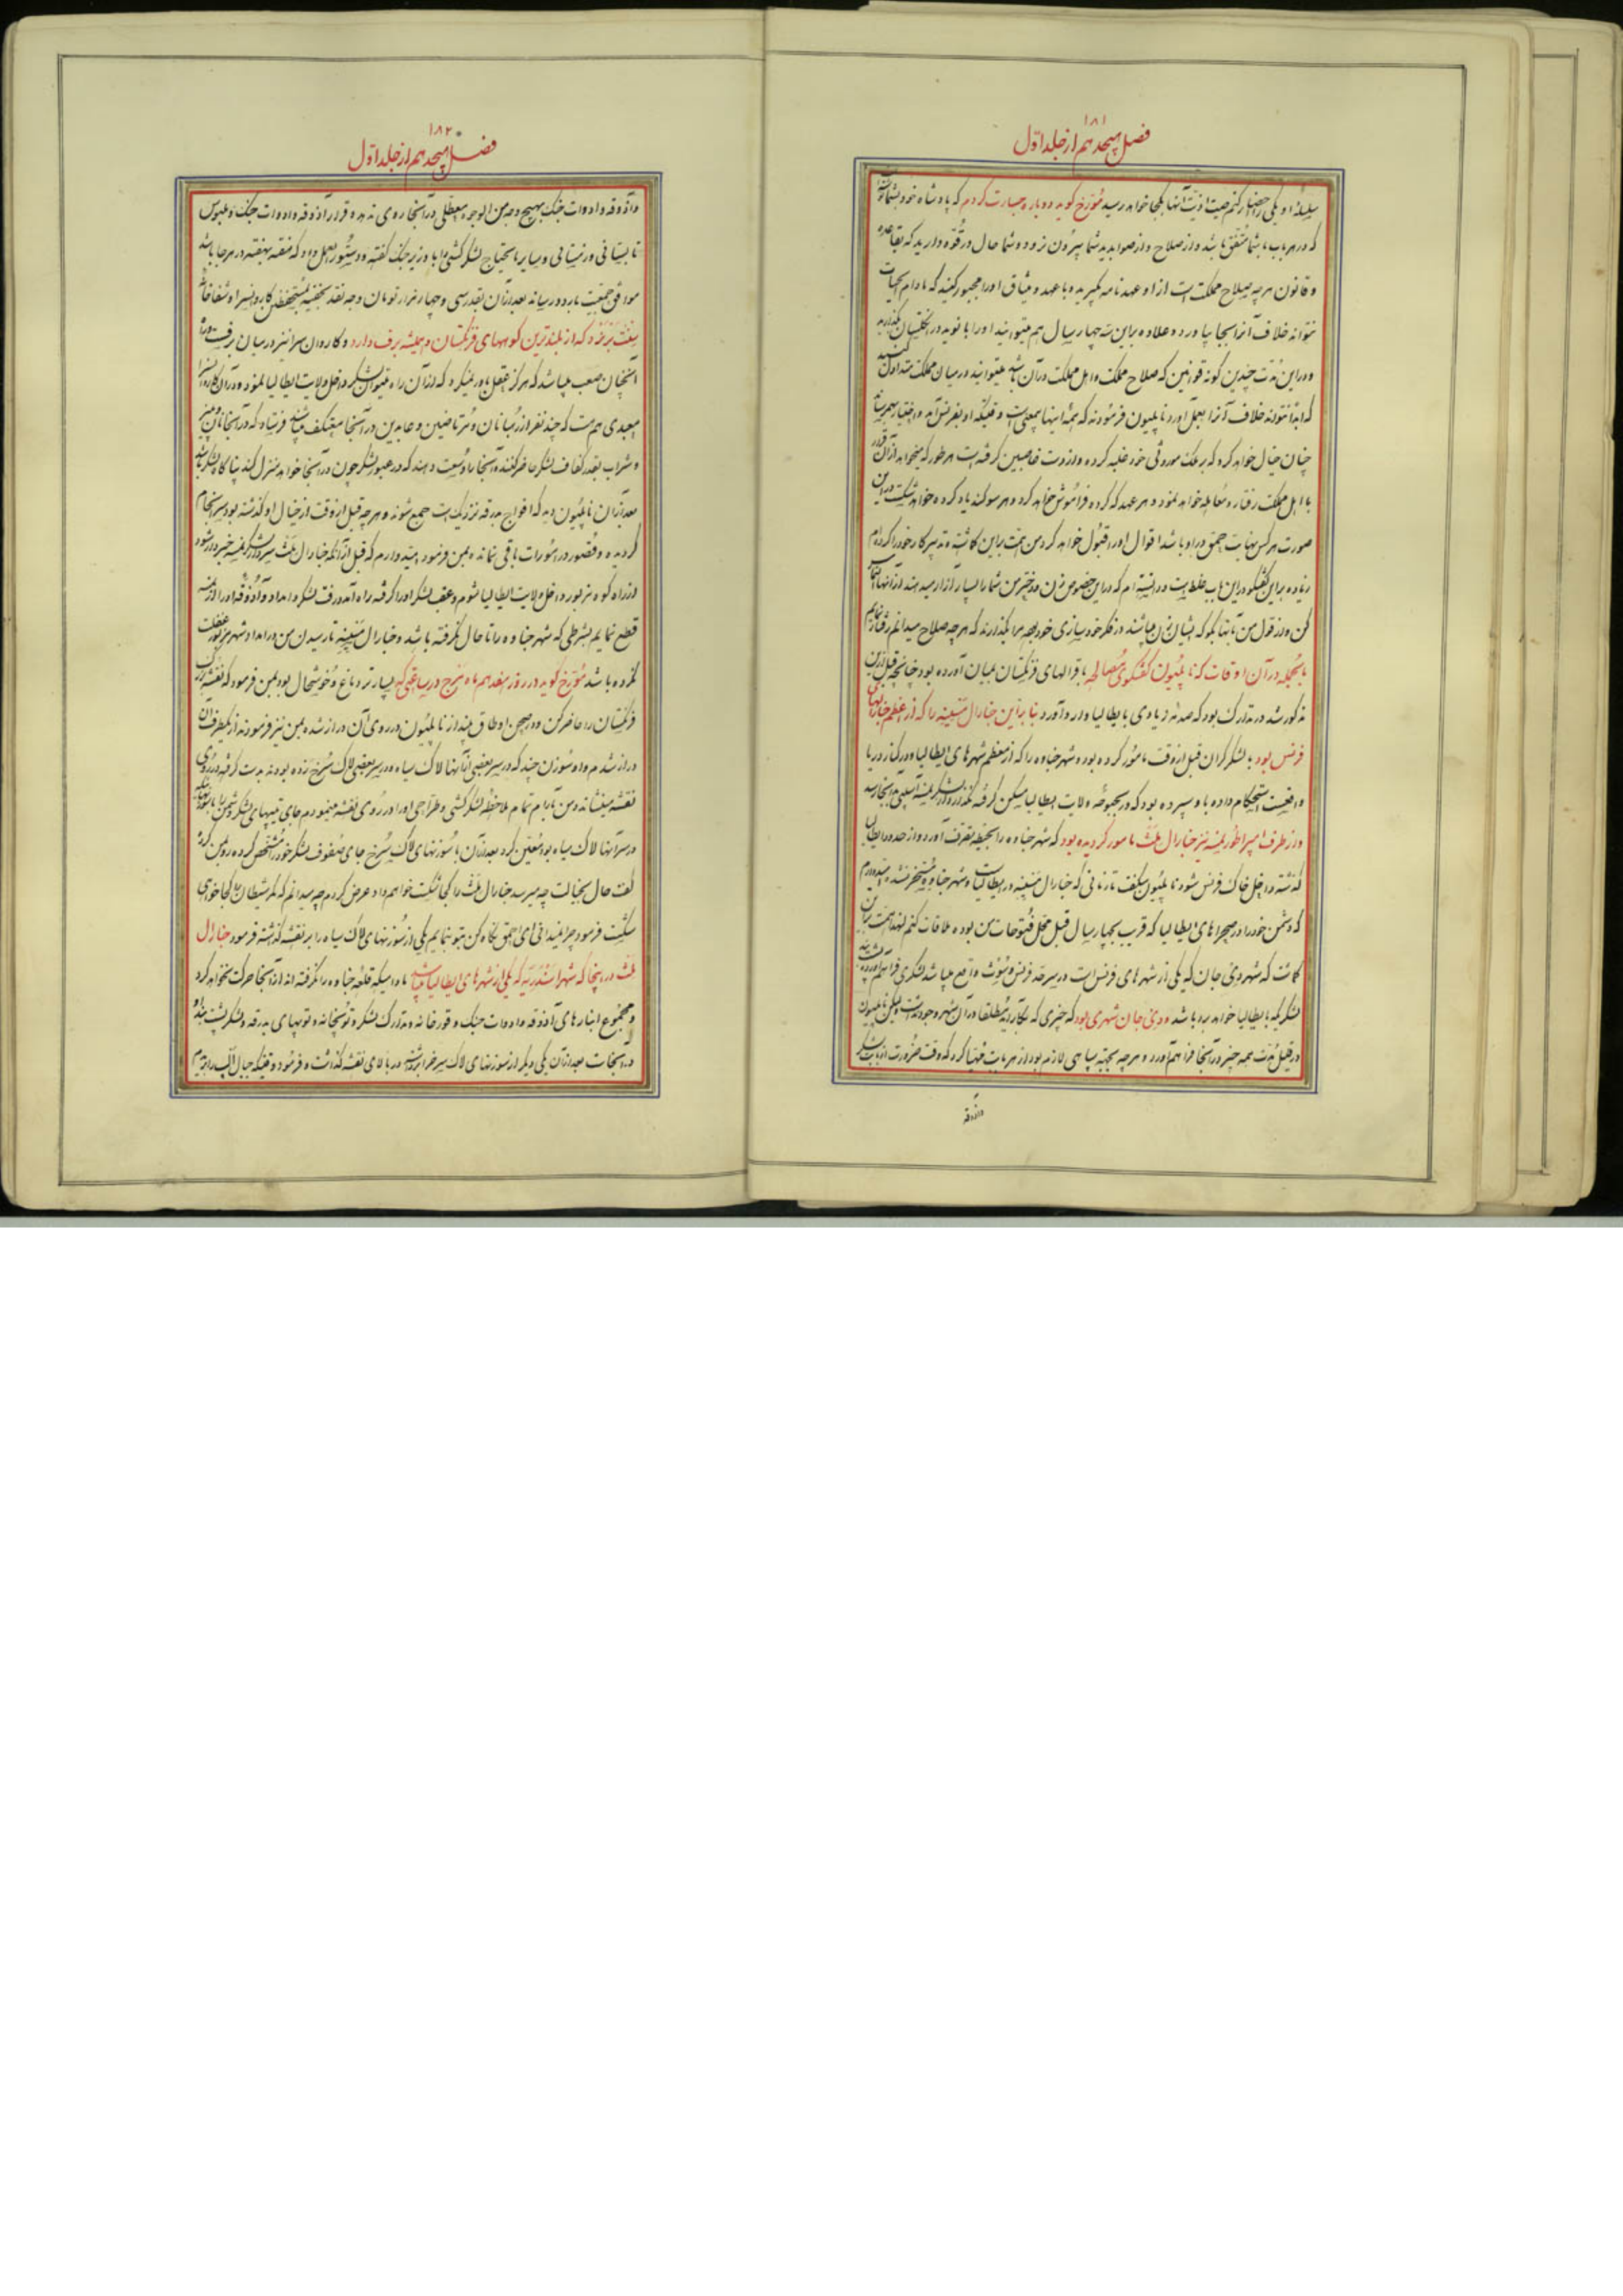 ۱۸۱
فصل هیجدهم از جلد اوّل
او یکی را احضار کنم صیت اذیت آنها بکجا خواهد رسید مُورّخ کوید دوباره جسارت کردم که پادشاه خود بشما
که در هر باب با شما متفق باشد و از صلاح و از صوابدید شما بیرون نرود و شما حال در قوّه دارید که
و قانون هر چه صلاح مملکت است از او عهدنامه بگیرید و با عهد و میثاق او را مجبور کنید که مادام الحیات
نتواند خلاف آنرا بجا بیاورد و علاوه براین سه چهار سال هم میتوانید او را در انگلستان
و در این مدّت چندین کونه قوانین که صلاح مملکت و اهل مملکت در آن باشد میتوانید در میان مملکت
که ابداً نتواند خلاف آنرا بعمل آورد ناپلیون فرمودند که همهٔ اینها بیمعنی است وقتیکه او بفرنس آمد و اختیار
چنان خیال خواهد کرد که بر ملک موروثی خود غلبه کرده و از دست غاصبین کرفته است هر طور که میخواهد
با اهل مملکت رفتار و معامله خواهد نمود و هر عهد که کرده فراموش خواهد کرد و هر سوکند یاد کرده خواهد شکست
صورت هر کس نهایت حمق در او باشد اقوال او را قبول خواهد کرد من همّت براین کاشته و تدبیر کار خود را کرده‌ام
زیاده براین کفتگو در این باب غلط است و دانسته‌ام که در این خصوص زن و دختر من شما را بسیار آزار میدهند
کن و از قول من بآنها بکو که ایشان زن میباشند در فکر خودسازی خود مرا بگذارند که هر چه صلاح میدانم رفتار نمایم
بالجمله در آن اوقات که ناپلیون کفتگوی مصالحه با قرالهای فرنگستان بمیان آورده بود چنانچه قبل از این
مذکور شد در تدارک بود که صدمهٔ زیادی بایطالیا وارد آورد بنابراین جنارال مَسّینه را که از اعظم
فرنس بود با لشکر کران قبل از وقت مأمور کرده بود و شهر جناوه را که از معظم شهرهای ایطالیا و در کنار دریا
واقعست استحکام داده باو سپرده بود که در بحبوحهٔ ولایت ایطالیا مسکن کرفته
و از طرف امپراطور نمسه نیز جنارال مَلَث مأمور کردیده بود که شهر جناوه را بحیطهٔ تصرف آورد و از حدود ایطالیا
کذشته داخل خاک فرنس شود ناپلیون میکفت تا زمانی که جنارال مَسّینه در ایطالیا است و شهر جناوه مسخّر نشده
که دشمن خود را در صحراهای ایطالیا که قریب بچهار سال قبل محل فتوحات من بوده ملاقات کنم لهذا همّت براین
کماشت که شهر دی‌جان که یکی از شهرهای فرنس است در سرحد فرنس و سُوِث واقع میباشد لشکری فراهم آورده
لشکر که بایطالیا خواهد برد باشد و دی‌جان شهری بود که چیزی که بکار آید مطلقا در آن شهر وجود نداشت لیکن ناپلیون
در قلیل مدّت همه چیز در آنجا فراهم آورد و هر چه بجهت سپاهی لازم بود از هر بابت مهیّا کرد که وقت ضرورت از بابت لشکر
و آذوقه
۱۸۲
فصل هیجدهم از جلد اوّل
و آذوقه و ادوات جنک بهیچ وجه من الوجوه معطلی در آنجا روی ندهد و قرار آذوقه و ادوات جنک و ملبوس
تابستانی و زمستانی و سایر مایحتاج لشکرکشی را با وزیر جنک کفته و دستورالعمل داد که هفته بهفته در هر جا باشد
موافق جمعیت بارد و رسانند بعد از آن بقدر سی و چهار هزار تومان وجه نقد بخفیه
سِنت بَرنَرد که از بلندترین کوههای فرنگستان و همیشه برف دارد و کاروانسرا نیز در میان برف است
آنچنان صعب میباشد که هرکز عقل باور نمیکرد که از آن راه میتوان لشکر داخل ولایت ایطالیا نمود و در آن کاروانسرا
معبدی هم هست که چند نفر از رهبانان و مرتاضین و عابدین در آنجا معتکف میباشند فرستاد که در آنجا نان و پنیر
و شراب بقدر کفاف لشکر حاضر کنند و آنجا را وسعت دهند که در عبور لشکر چون در آنجا خواهند منزل کنند پناه کاه لشکر باشد
بعد از آن ناپلیون دید که افواج بدرقه نزدیکست جمع شوند و هر چه قبل از وقت از خیال او کذشته بود سرانجام
کردیده و قصور در امورات باقی نمانده بمن فرمود امیدوارم که قبل از آنکه جنارال مَلَث سردار لشکر نمسه خبردار شود
از راه کوه مزبور داخل ولایت ایطالیا شوم و عقب لشکر او را کرفته راه آمد و رفت لشکر و امداد و آذوقه او را از نمسه
قطع نمایم بشرطی که شهر جناوه را تا حال نکرفته باشد و جنارال مَسّینه تا رسیدن من در امداد شهر مزبور غفلت
نکرده باشد مُورّخ کوید در روز هفدهم ماه مَرچ در ساعتی که بسیار تر دماغ و خوشحال بود بمن فرمود که نقشه بزرک
فرنگستان را حاضر کن و در صحن اوطاق بینداز ناپلیون در روی آن دراز شده بمن نیز فرمودند از یکطرف آن
دراز شدم و او سوزن چند که در سر بعضی از آنها لاک سیاه و در سر بعضی لاک سُرخ زده بودند بدست کرفته در روی
نقشه مینشاند و من بآرام تمام ملاحظهٔ لشکرکشی و طراحی او را در روی نقشه مینمودم جای تیپهای لشکر دشمن را با سوزنهائیکه
در سر آنها لاک سیاه بود معیّن کرد بعد از آن با سوزنهای لاک سُرخ جای صفوف لشکر خود را مشخص کرده رو بمن کرد
کفت حال بخیالت چه میرسد جنارال مَلَث را کجا شکست خواهم داد عرض کردم چه میدانم که مکر شیطان کجا خواهی
شکست فرمود چرا نمیدانی ای احمق نکاه کن بتو بنمایم یکی از سوزنهای لاک سیاه را بر نقشه کذاشته فرمود جنارال
مَلَث در اینجا که شهر اسکندریّه که یکی از شهرهای ایطالیا میباشد مادامیکه قلعه جناوه را نکرفته اند از اینجا حرکت نخواهد کرد
و مجموع انبارهای آذوقه و ادوات جنک و قورخانه و تدارک لشکر و توپخانه و توپهای بدرقه و لشکر پشت بند
در اینجاست بعد از آن یکی دیکر از سوزنهای لاک سرخ را برداشته در بالای نقشه کذاشت و فرمود وقتیکه جبال آلپ را بریدیم